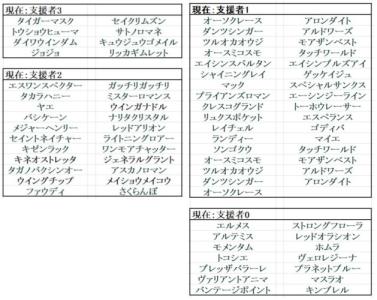 現在:支援者3
タイガーマスク セイクリムズン
トウショウヒューマ サトノロマネ
ダイワウインダム キュウジュウゴメイル
ジョジョ リッカギムレット
現在:支援者2
エスワンスペクター ガッチリガッチリ
タカラハニー ミスターロマンス
ヤエ ウインガナドル
バシケーン ナリタクリスタル
メジャーヘンリー レッドアリオン
セイントネイチャー ライトニングロアー
キゼンラック ワンモアチャッター
キネオストレッタ ジェネラルグラント
タガノバクシンオー アスカノロマン
ウイングチップ メイショウメイコウ
ファウディ さくらんぼ
現在:支援者1
オーソクレース アロンダイト
ダンツシンガー アルドワーズ
ツルオカオウジ モアザンベスト
オースミコスモ タッチワールド
エイシンスバルタン エイシンブルズアイ
シャイニングレイ ゲッケイジュ
マック スペシャルサンクス
ブライアンズロマン エーシンジーライン
クレスコグランド トーホウレーサー
リュクスポケット エスペランス
レイチェル ゴディバ
ランディー マイエ
ソンゴクウ タッチワールド
オースミコスモ モアザンベスト
ツルオカオウジ アルドワーズ
ダンツシンガー アロンダイト
オーソクレース
現在:支援者0
エルメス ストロングフローラ
アルテミス レッドオラシオン
モメンタム ホムラ
トコシエ ヴェロレジーナ
ブレッザバラーレ プラネットブルー
ヴァリアントアニマ マスラオ
バンテージポイント キンブレル